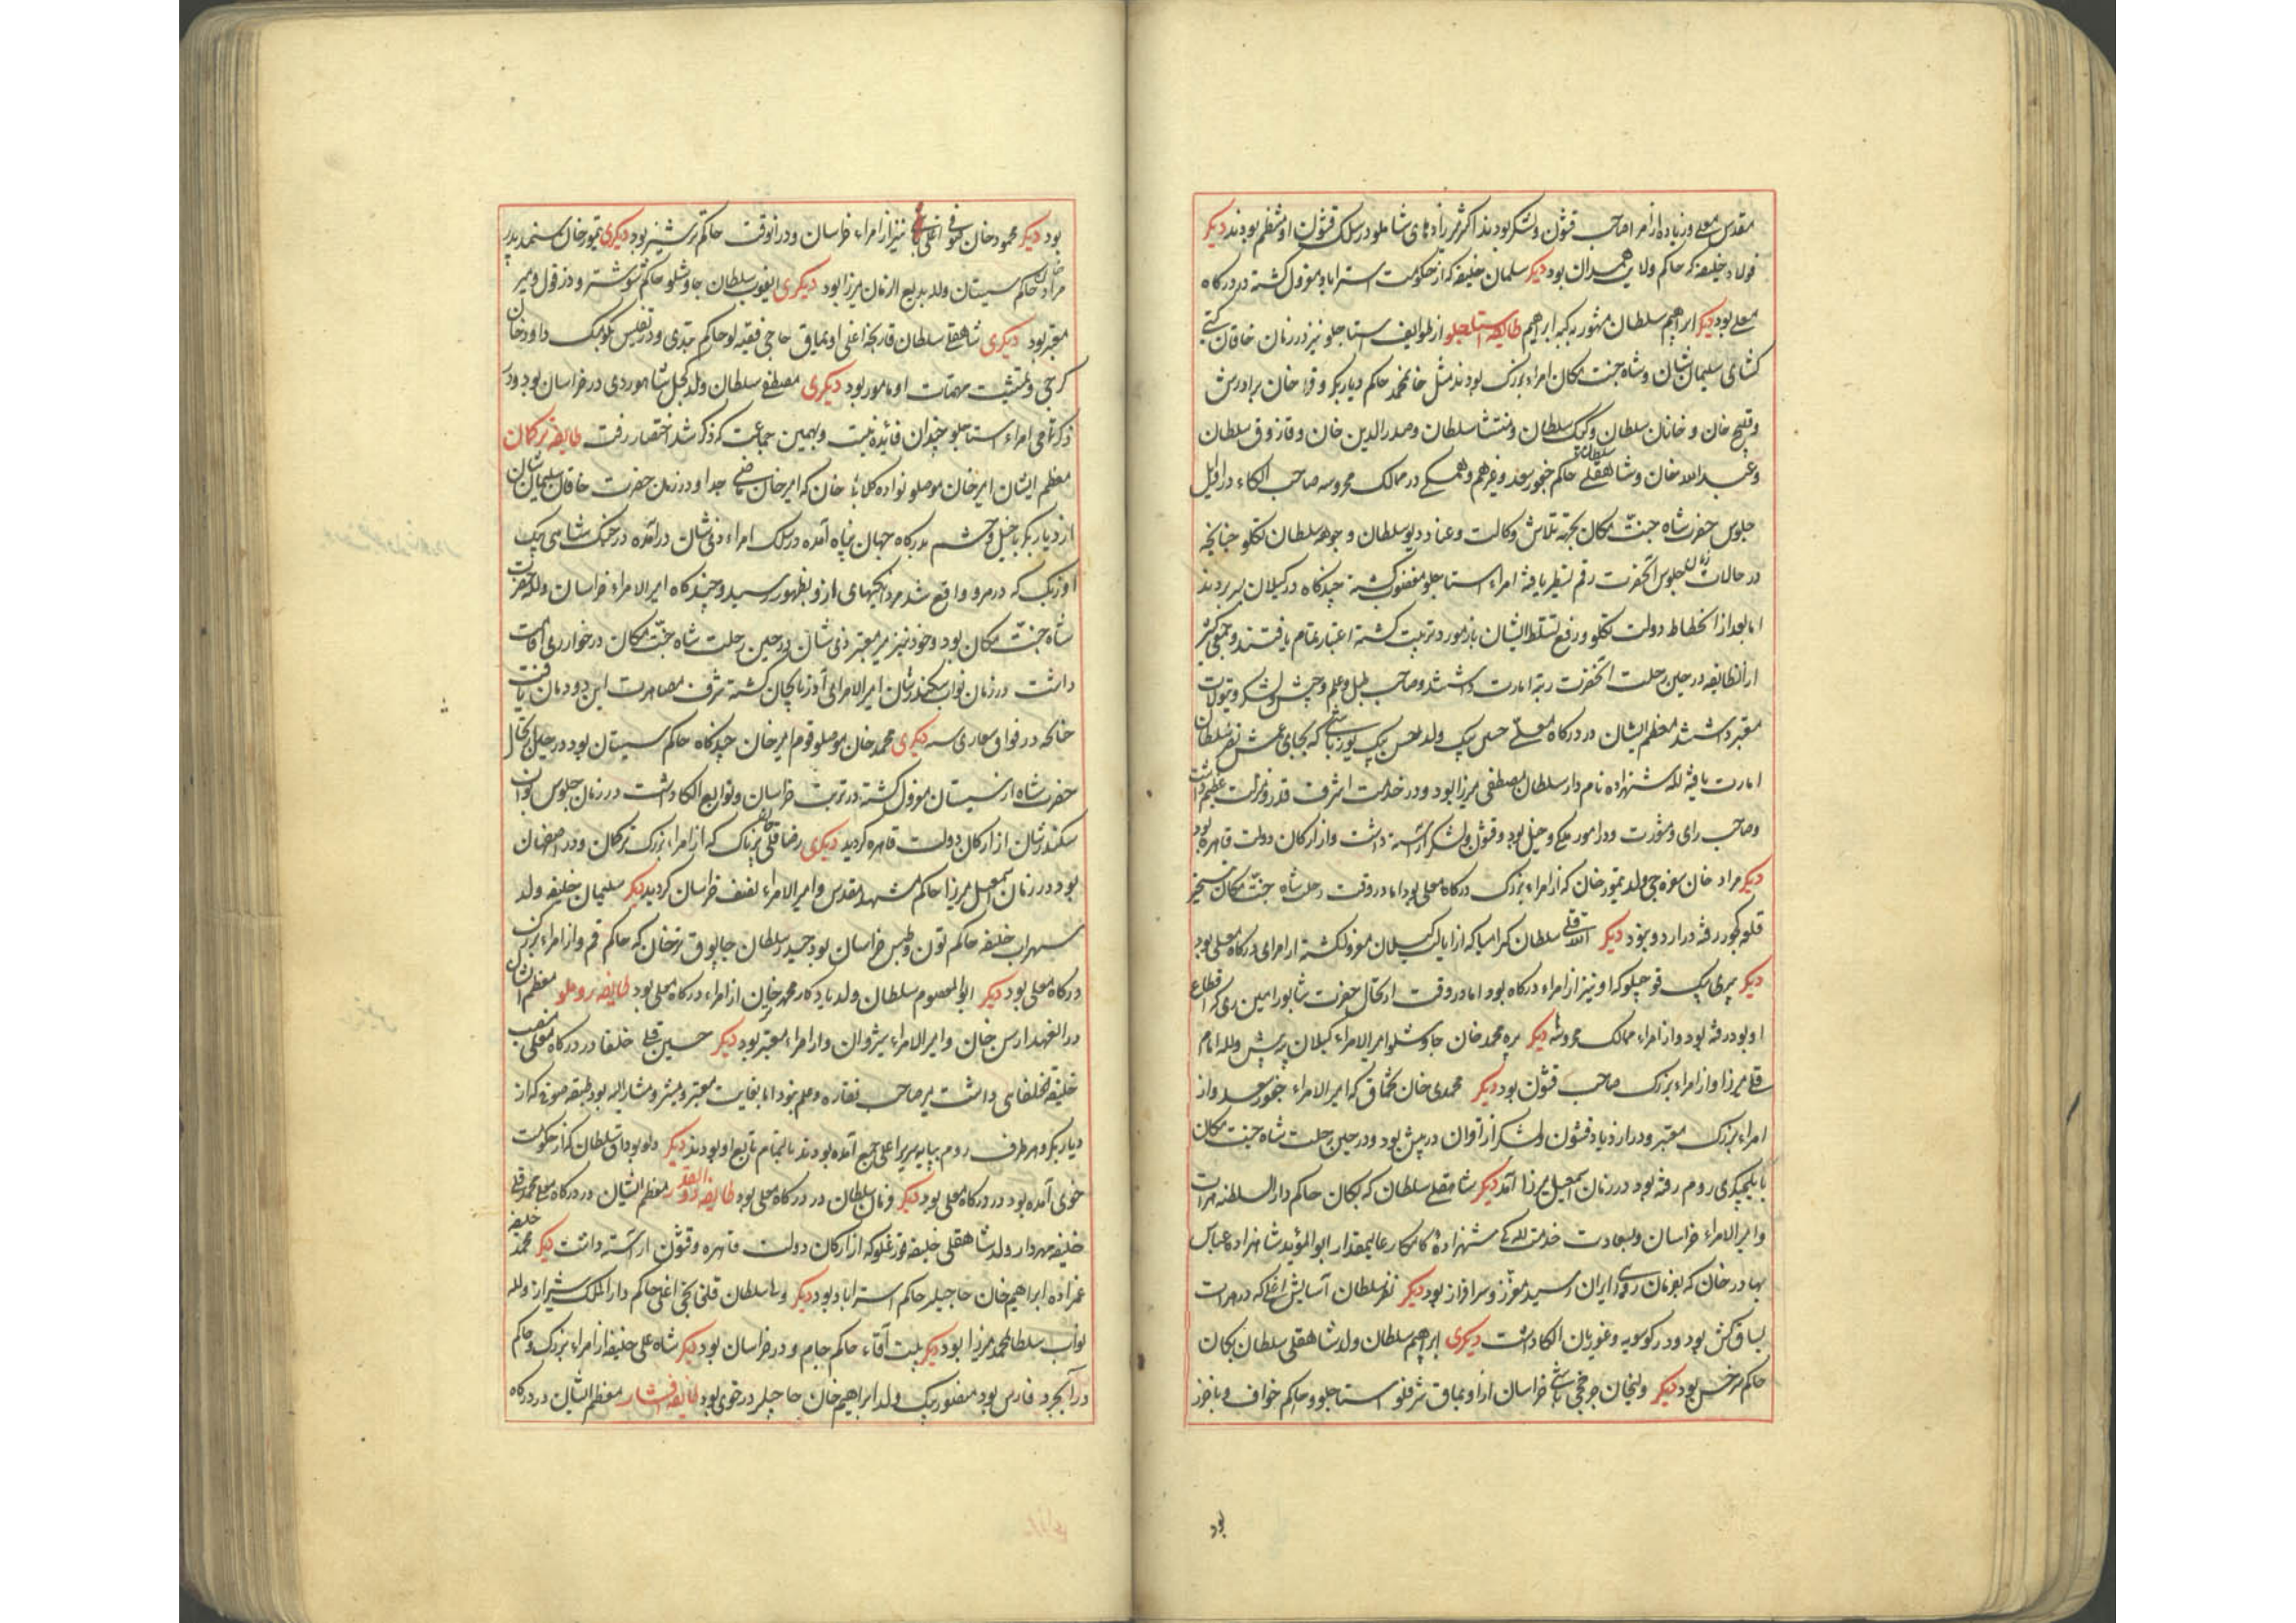 مقدس معلی و زیاده از امرا صاحب قشون و لشکر بودند اکثر میرزاده‌های شاملو در سلک قشون او منتظم بودند دیگر
فولاد خلیفه که حاکم ولایت همدان بود دیگر سلمان خلیفه که از حکومت استراباد معزول کشته در درکاه
معلی بود دیگر ابراهیم سلطان مشهور به کبه ابراهیم طایفه استاجلو از طوایف استاجلو نیز در زمان خاقان کیتی
کشای سلیمان شان و شاه جنت مکان امراء بزرک بودند مثل خانمحمد حاکم دیاربکر و قرا خان برادرش
و قلیج خان و خانان سلطان و کوپک سلطان و منتشا سلطان و صدرالدین خان و قازوق سلطان
و عبد الله خان و شاهقلی سلطان حاکم خجور سعد و غیرهم و همکی در ممالک محروسه صاحب الکاء در اوایل
جلوس حضرت شاه جنت مکان بجهة تلاش وکالت و عناد دیو سلطان و جوهه سلطان تکلو چنانچه
در حالات زمان جلوس آنحضرت رقم تسطیر یافته امراء استاجلو مغضوب کشته چندکاه در کیلان بسر بردند
اما بعد از انحطاط دولت تکلو و رفع تسلط ایشان باز مورد تربیت کشته اعتبار تمام یافتند و جمعی کثیر
از آنطایفه در حین رحلت آنحضرت رتبه امارت داشتند و صاحب طبل و علم و جیش و لشکر و تیولات
معتبر داشتند معظم ایشان در درکاه معلی حسین بیک ولد حسن بیک یوزباشی که بجای عمش نظر سلطان
امارت یافته لله شهزاده نام‌دار سلطان مصطفی میرزا بود و در خدمت اشرف قدر و منزلت عظیم داشت
و صاحب رای و مشورت و در امور ملکی دخیل بود و قشون و لشکر آراسته داشت و از ارکان دولت قاهره بود
دیکر مراد خان سفره‌چی ولد تیمور خان که از امراء بزرک درکاه معلی بود اما در وقت رحلت شاه جنت مکان بتسخیر
قلعه کجور رفته در اردو نبود دیکر الله قلی سلطان که از ایالت کیلان معزول کشته از امرای درکاه معلی بود
دیکر پیری بیک قوچیلو که او نیز از امراء درکاه بود اما در وقت ارتحال حضرت شاه بورامین ری که اقطاع
او بود رفته بود و از امراء ممالک محروسه دیکر پیره محمد خان جاوشلو امیر الامراء کیلان پیه پس و لله امام
قلی میرزا و از امراء بزرک صاحب قشون بود دیکر محمدی خان تخماق که امیر الامراء جخور سعد و از
امراء بزرک معتبر و دارا زیاد قشون و لشکر از اقوان در پیش بود و در حین رحلت شاه جنت مکان
با ایلچیکری روم رفته بود در زمان اسمعیل میرزا آمد دیکر شاهقلی سلطان که بکان حاکم دار السلطنه هرات
و امیر الامراء خراسان و بسعادت خدمت للکی شهزاده کامکار عالیمقدار ابوالمؤید شاهزاده عباس
بهادر خان که بفرمان روای ایران رسید معزز و سرافراز بود دیکر نظر سلطان آسایش اغلی که در هرات
یساق کش بود و در کوسویه و غوریان الکا داشت دیکری ابراهیم سلطان ولد شاهقلی سلطان بکان
حاکم سرخس بود دیکر ولیخان خراسان از اویماق شرفلو استاجلو و حاکم خواف و باخرز
بود
بود دیکر محمود خان صوفی اغلی نیز از امراء خراسان و در آنوقت حاکم ترشیز بود دیکری تیمور خان
حاکم سیستان ولد بدیع الزمان میرزا بود دیکری ایغوب سلطان جاوشلو حاکم شوشتر و دزفول و میر
معتبر بود دیکری شاهقلی سلطان قارنجه اغلی اویماق حاجی فقیه‌لو حاکم و در تفلیس بکومک داود خان
کرجی و تمشیت مهمات او مامور بود دیکری مصطفی سلطان ولد در خراسان بود و در
ذکر تمامی امراء استاجلو چندان فائده نیست و بهمین جماعت که ذکر شد اختصار رفت طایفه ترکمان
معظم ایشان امیر خان موصلو نواده کلابی خان که امیر خان ماضی جد او در زمان حضرت خاقان سلیمان شان
از دیاربکر با خیل و حشم بدرکاه جهان پناه آمده در سلک امراء ذی شان درآمده در جنک شاهی بیک
اوزبک که در مرو واقع شد مردانکیهای از او بظهور رسید و چند کاه امیر الامراء خراسان و لله حضرت
شاه جنت مکان بود و خود نیز میر معتبر ذی شان در حین رحلت شاه جنت مکان در خوار ری اقامت
داشت در زمان نواب سکندر شان امیر الامرای آذربایجان کشته شرف مصاهرت این دودمان یافت
دیکری محمد خان موصلو قوم امیر خان چند کاه حاکم سیستان بود در حین ارتحال
حضرت شاه از سیستان معزول کشته در تربت خراسان و توابع الکا داشت در زمان جلوس نواب
سکندر شان از ارکان دولت قاهره کردید دیکری رضا قلی خان پرناک که از امراء بزرک ترکمان و در اصفهان
بود در زمان اسمعیل میرزا حاکم مشهد مقدس و امیر الامراء نصف خراسان کردید دیکر سلیمان خلیفه ولد
سهراب خلیفه حاکم تون و طبس خراسان بود حیدر سلطان جابوق ترخان که حاکم قم و از امراء بزرک
درکاه معلی بود دیکر ابوالمعصوم سلطان ولد یادکار محمد خان از امراء درکاه معلی بود طایفه روملو معظم ایشان
ارس خان و امیر الامراء شروان و از امراء معتبر بود دیکر حسین قلی خلفا در درکاه معلی منصب
خلیفة الخلفای داشت میر صاحب نقاره و علم نبود اما بغایت معتبر و مشیر و مشار الیه بود طبقه صوفیه که از
دیاربکر و هر طرف روم بپایه سریر اعلی جمع آمده بودند بالتمام تابع او بودند دیکر دلو بوداق سلطان که از حکومت
خوی آمده بود در درکاه معلی بود دیکر سلطان در درکاه معلی بود طایفه ذو القدر معظم ایشان در درکاه معلی محمد قلی
خلیفه مهردار ولد شاهقلی خلیفه که از ارکان دولت قاهره و قشون آراسته داشت دیکر محمد خلیفه
عمزاده ابراهیم خان حاجیلر حاکم استراباد بود دیکر ولی سلطان قلخانچی اغلی حاکم دار الملک شیراز و لله
نواب سلطان محمد میرزا بود دیکر بنت آقاء حاکم جام و در خراسان بود دیکر شاه علی خلیفه از امراء بزرک و حاکم
دارابجرد فارس بود منصور بیک ولد ابراهیم خان حاجیلر در خوی بود طایفه افشار معظم ایشان در درکاه